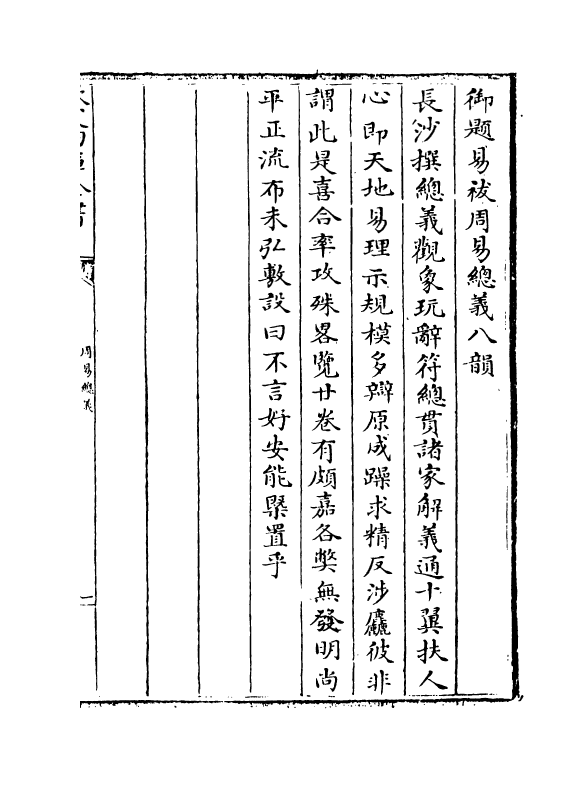 御題易祓周易總義八韻
長沙撰總義觀象玩辭符總貫諸家解義通十翼扶人
心即天地易理示規模多辯原成躁求精反涉麤彼非
謂此是喜合率攻殊畧覽廿卷有頗嘉各獘無發明尚
平正流布未弘敷設曰不言好安能槩置乎
周易總義
一